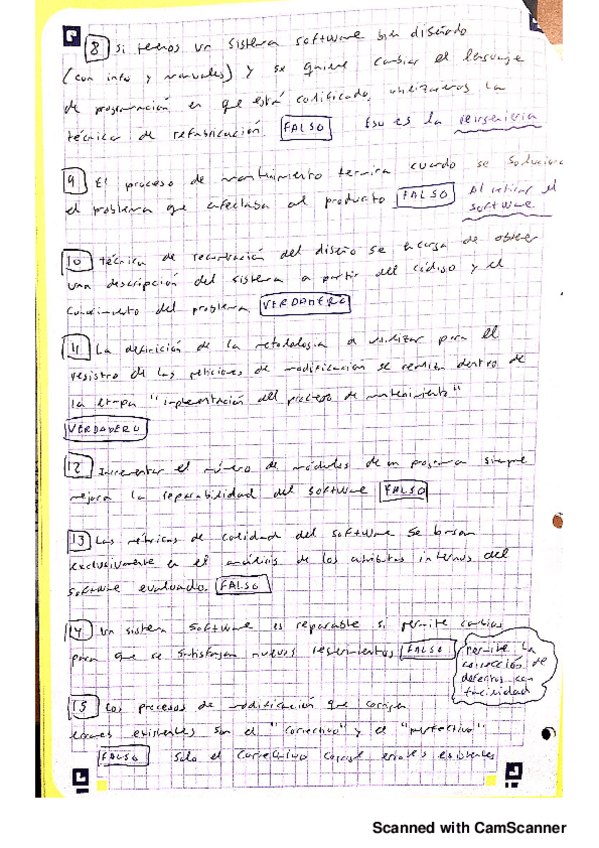 8 Si tenemos un sistema software bien diseñado
(con info y manuales) y se quiere cambiar el lenguaje
de programación en que está codificado, utilizaremos la
técnica de refabricación. FALSO Eso es la reingeniería
9 El proceso de mantenimiento termina cuando se soluciona
el problema que afectaba al producto FALSO Al retirar el
software
10 técnica de recuperación del diseño se encarga de obtener
una descripción del sistema a partir del código y el
conocimiento del problema VERDADERO
11 La definición de la metodología a utilizar para el
registro de las peticiones de modificación se realiza dentro de
la etapa "implementación del proceso de mantenimiento"
VERDADERO
12 Incrementar el número de módulos de un programa siempre
mejora la reparabilidad del software FALSO
13 Las métricas de calidad del software se basan
exclusivamente en el análisis de los atributos internos del
software evaluado. FALSO
14 Un sistema software es reparable si permite cambios
para que se satisfagan nuevos requerimientos FALSO permite la
corrección de
defectos con
facilidad
15 Los procesos de modificación que corrigen
errores existentes son el "correctivo" y el "perfectivo".
FALSO Solo el correctivo corrige errores existentes
Scanned with CamScanner